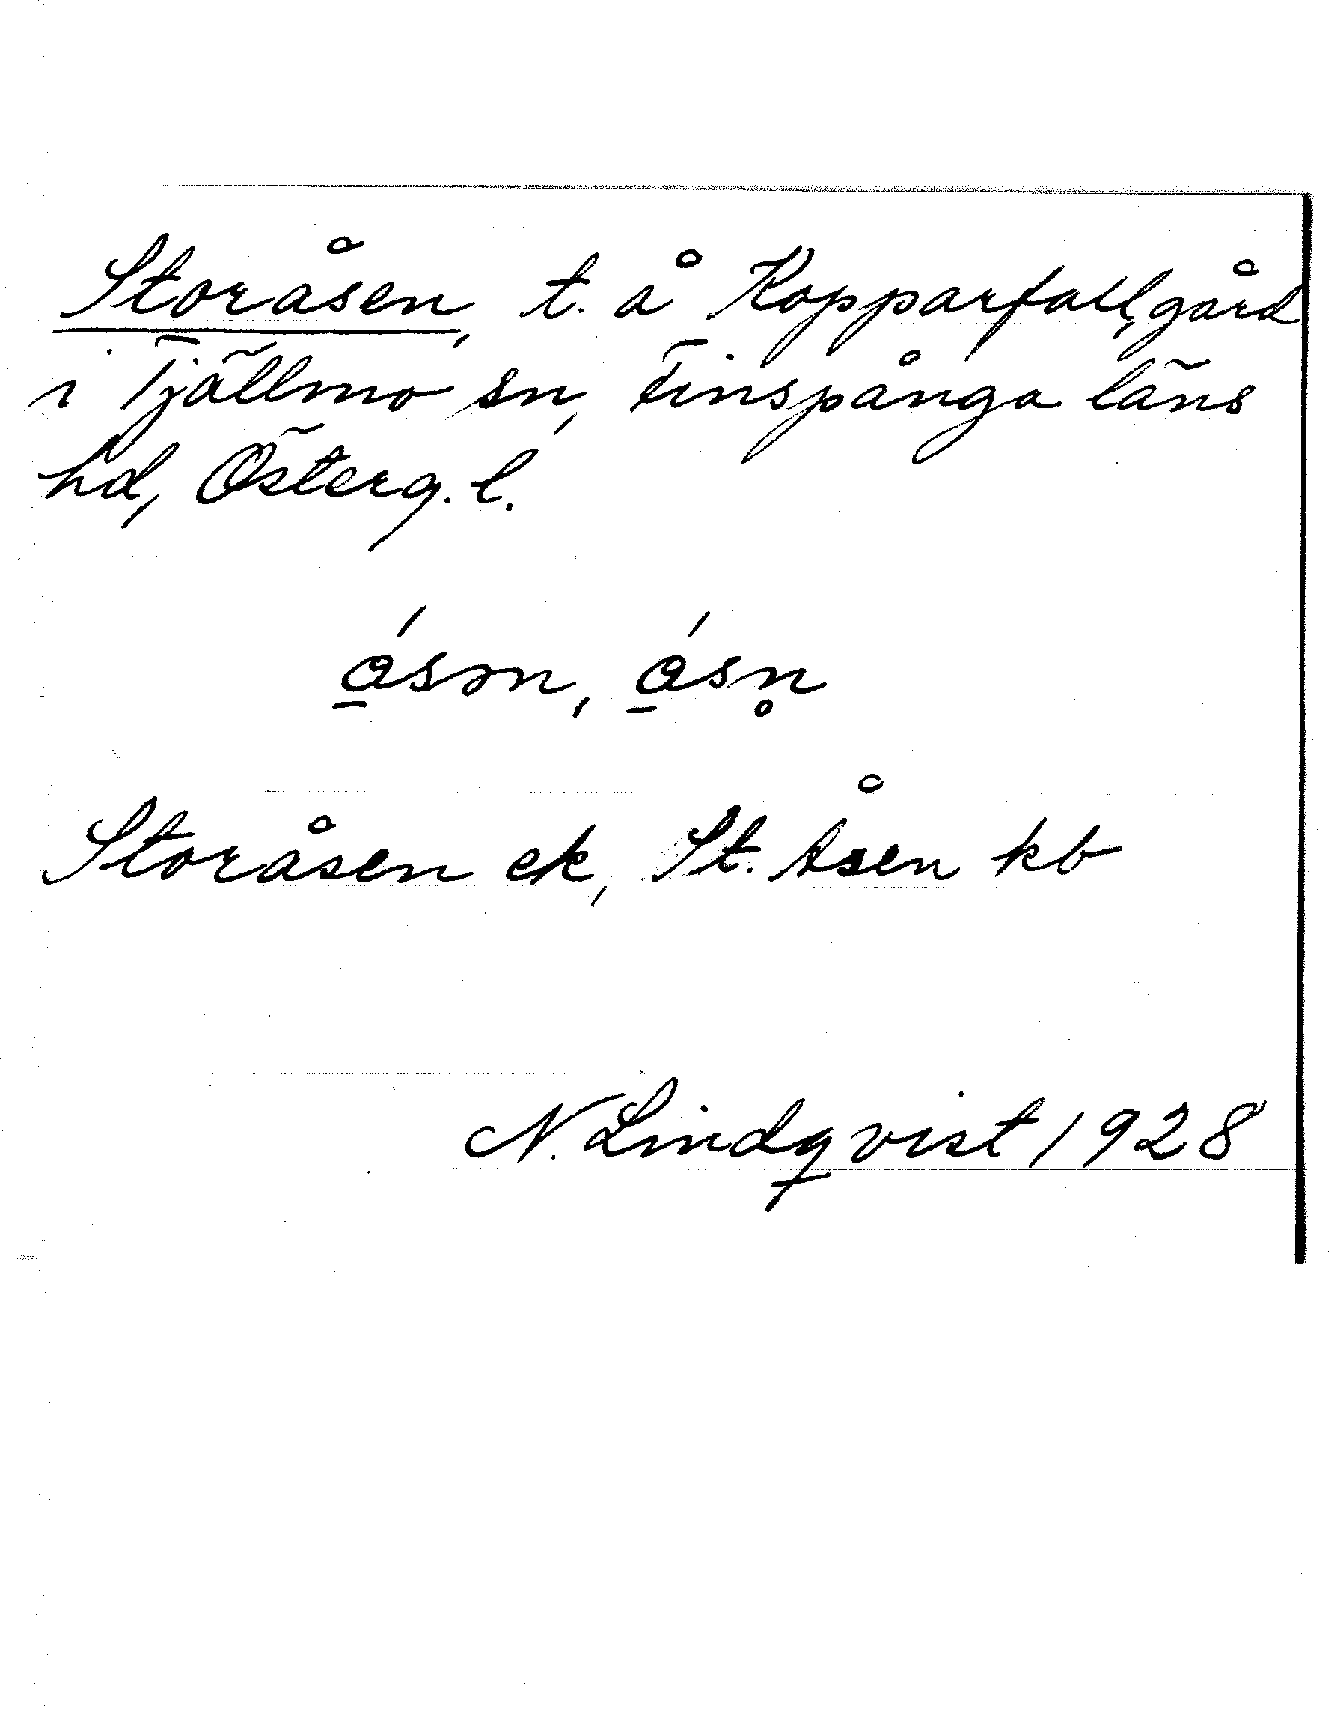 Storåsen, t. å Kopparfall, gård
i Tjällmo sn, Finspånga läns
hd, Österg. l.
ǻ̱sən, ǻ̱sn̥
Storåsen ek, St. Åsen kb
N. Lindqvist 1928